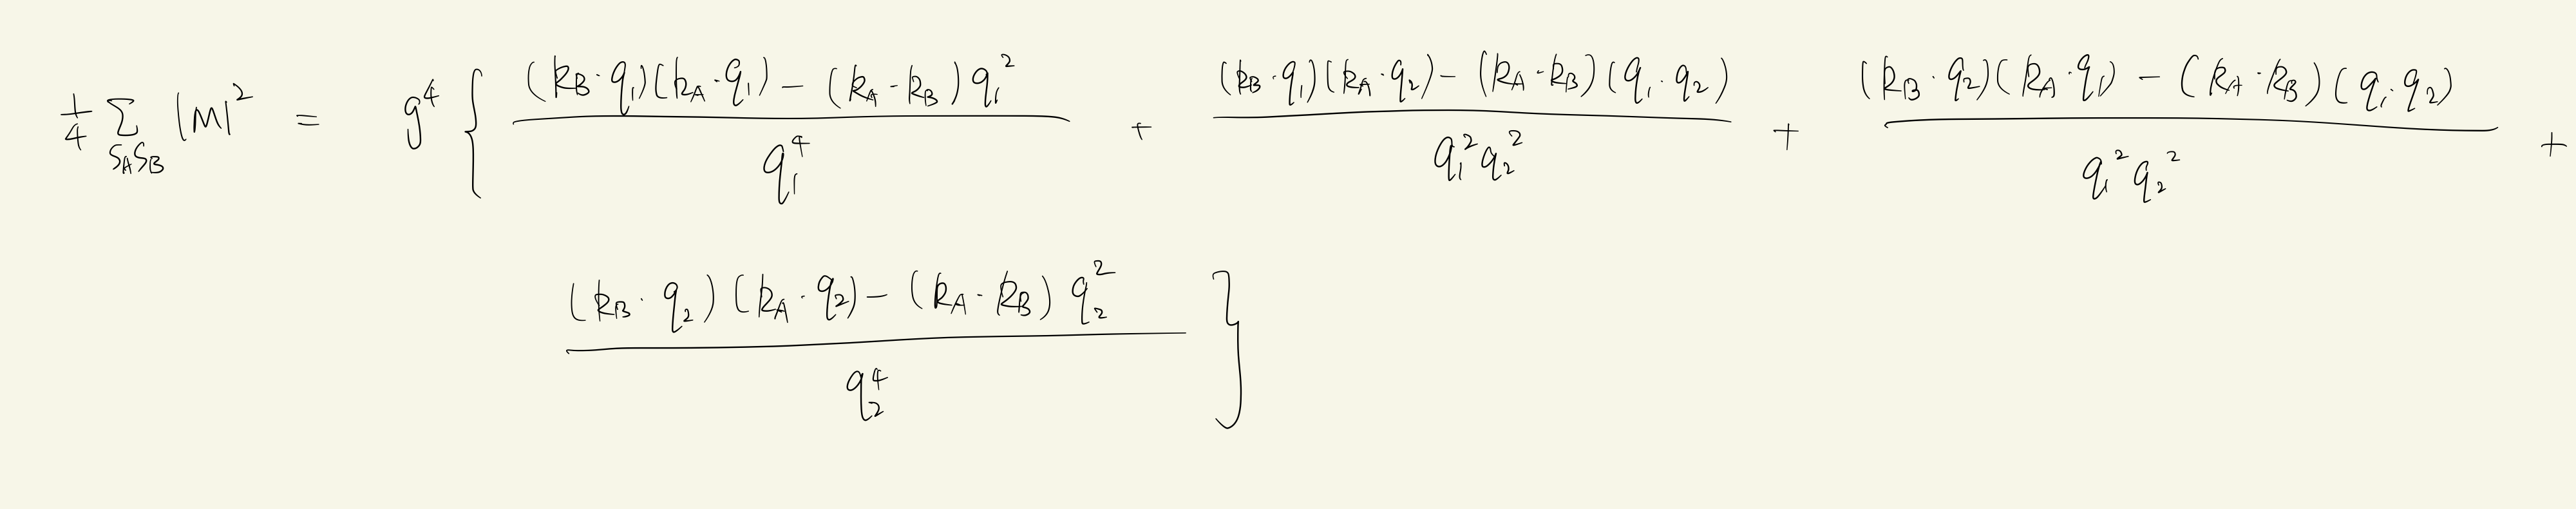 \frac{1}{4} \sum_{S_A S_B} |M|^2 = g^4 \left\{ \frac{(k_B \cdot q_1)(k_A \cdot q_1) - (k_A \cdot k_B) q_1^2}{q_1^4} + \frac{(k_B \cdot q_1)(k_A \cdot q_2) - (k_A \cdot k_B)(q_1 \cdot q_2)}{q_1^2 q_2^2} + \frac{(k_B \cdot q_2)(k_A \cdot q_1) - (k_A \cdot k_B)(q_1 \cdot q_2)}{q_1^2 q_2^2} +
\frac{(k_B \cdot q_2)(k_A \cdot q_2) - (k_A \cdot k_B) q_2^2}{q_2^4} \right\}